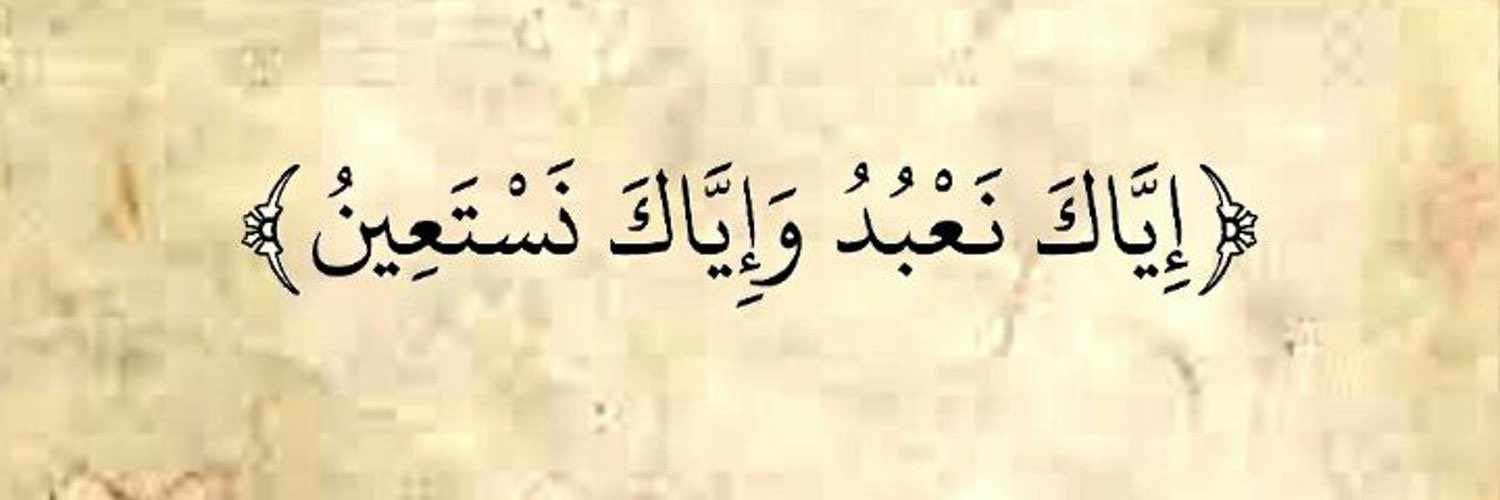 ﴿إِيَّاكَ نَعْبُدُ وَإِيَّاكَ نَسْتَعِينُ﴾